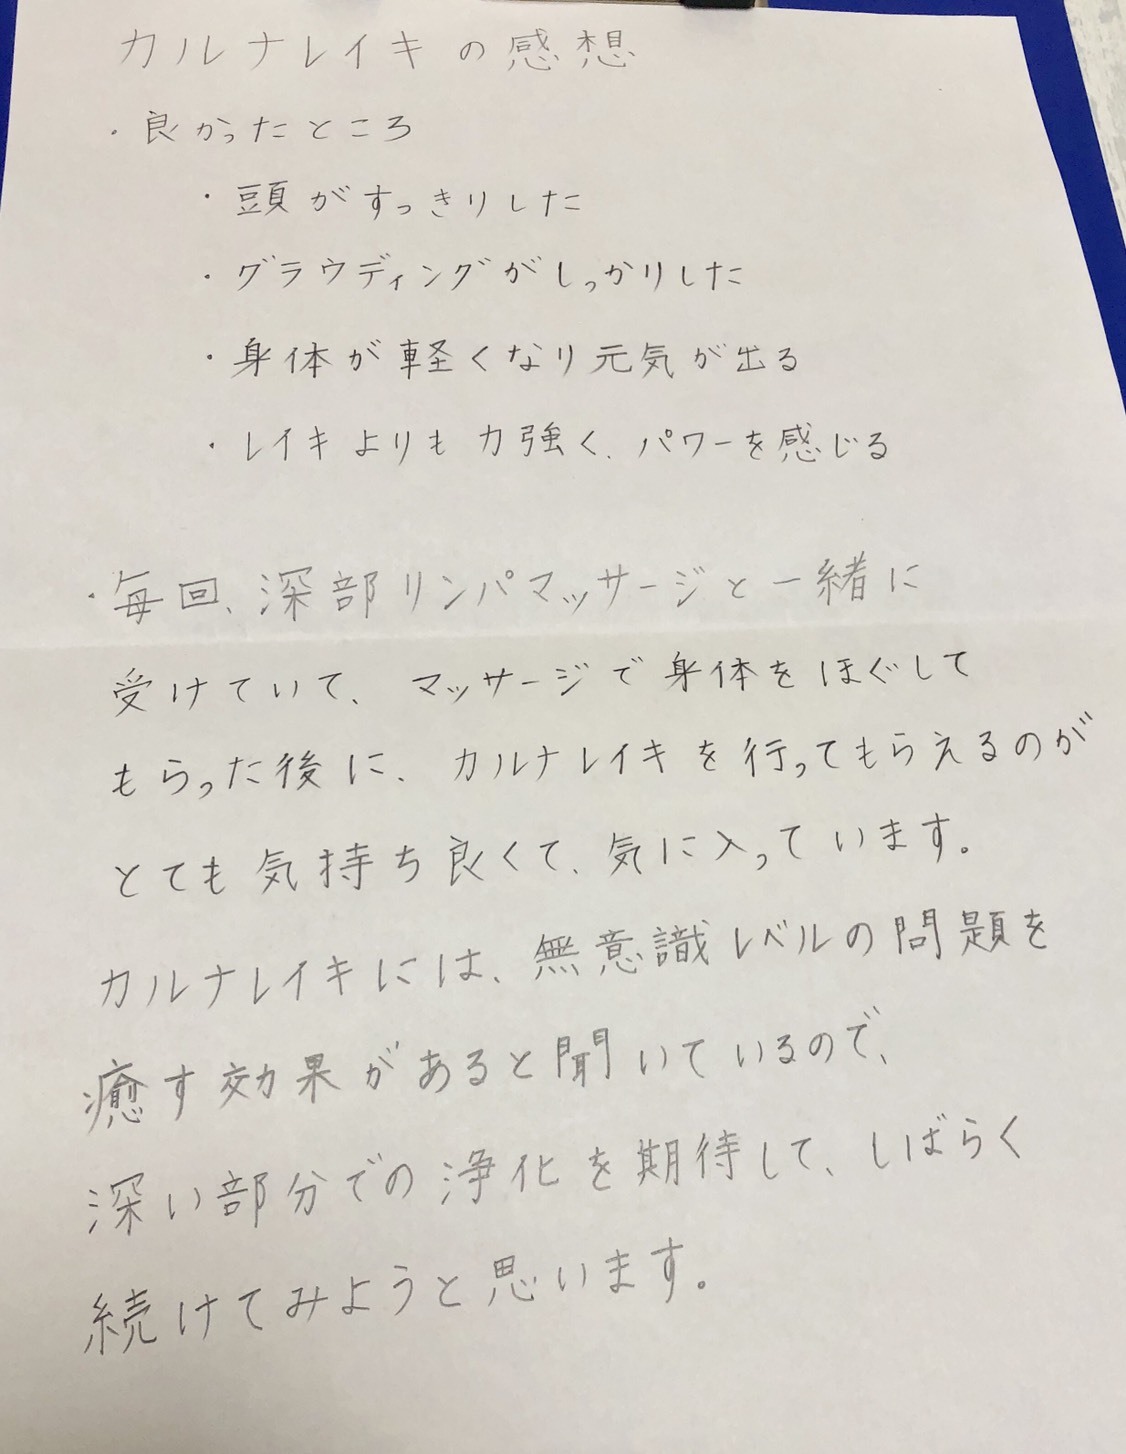 カルナレイキの感想
・良かったところ
・頭がすっきりした
・グラウディングがしっかりした
・身体が軽くなり元気が出る
・レイキよりも力強く、パワーを感じる
・毎回、深部リンパマッサージと一緒に
受けていて、マッサージで身体をほぐして
もらった後に、カルナレイキを行ってもらえるのが
とても気持ち良くて、気に入っています。
カルナレイキには、無意識レベルの問題を
癒す効果があると聞いているので、
深い部分での浄化を期待して、しばらく
続けてみようと思います。